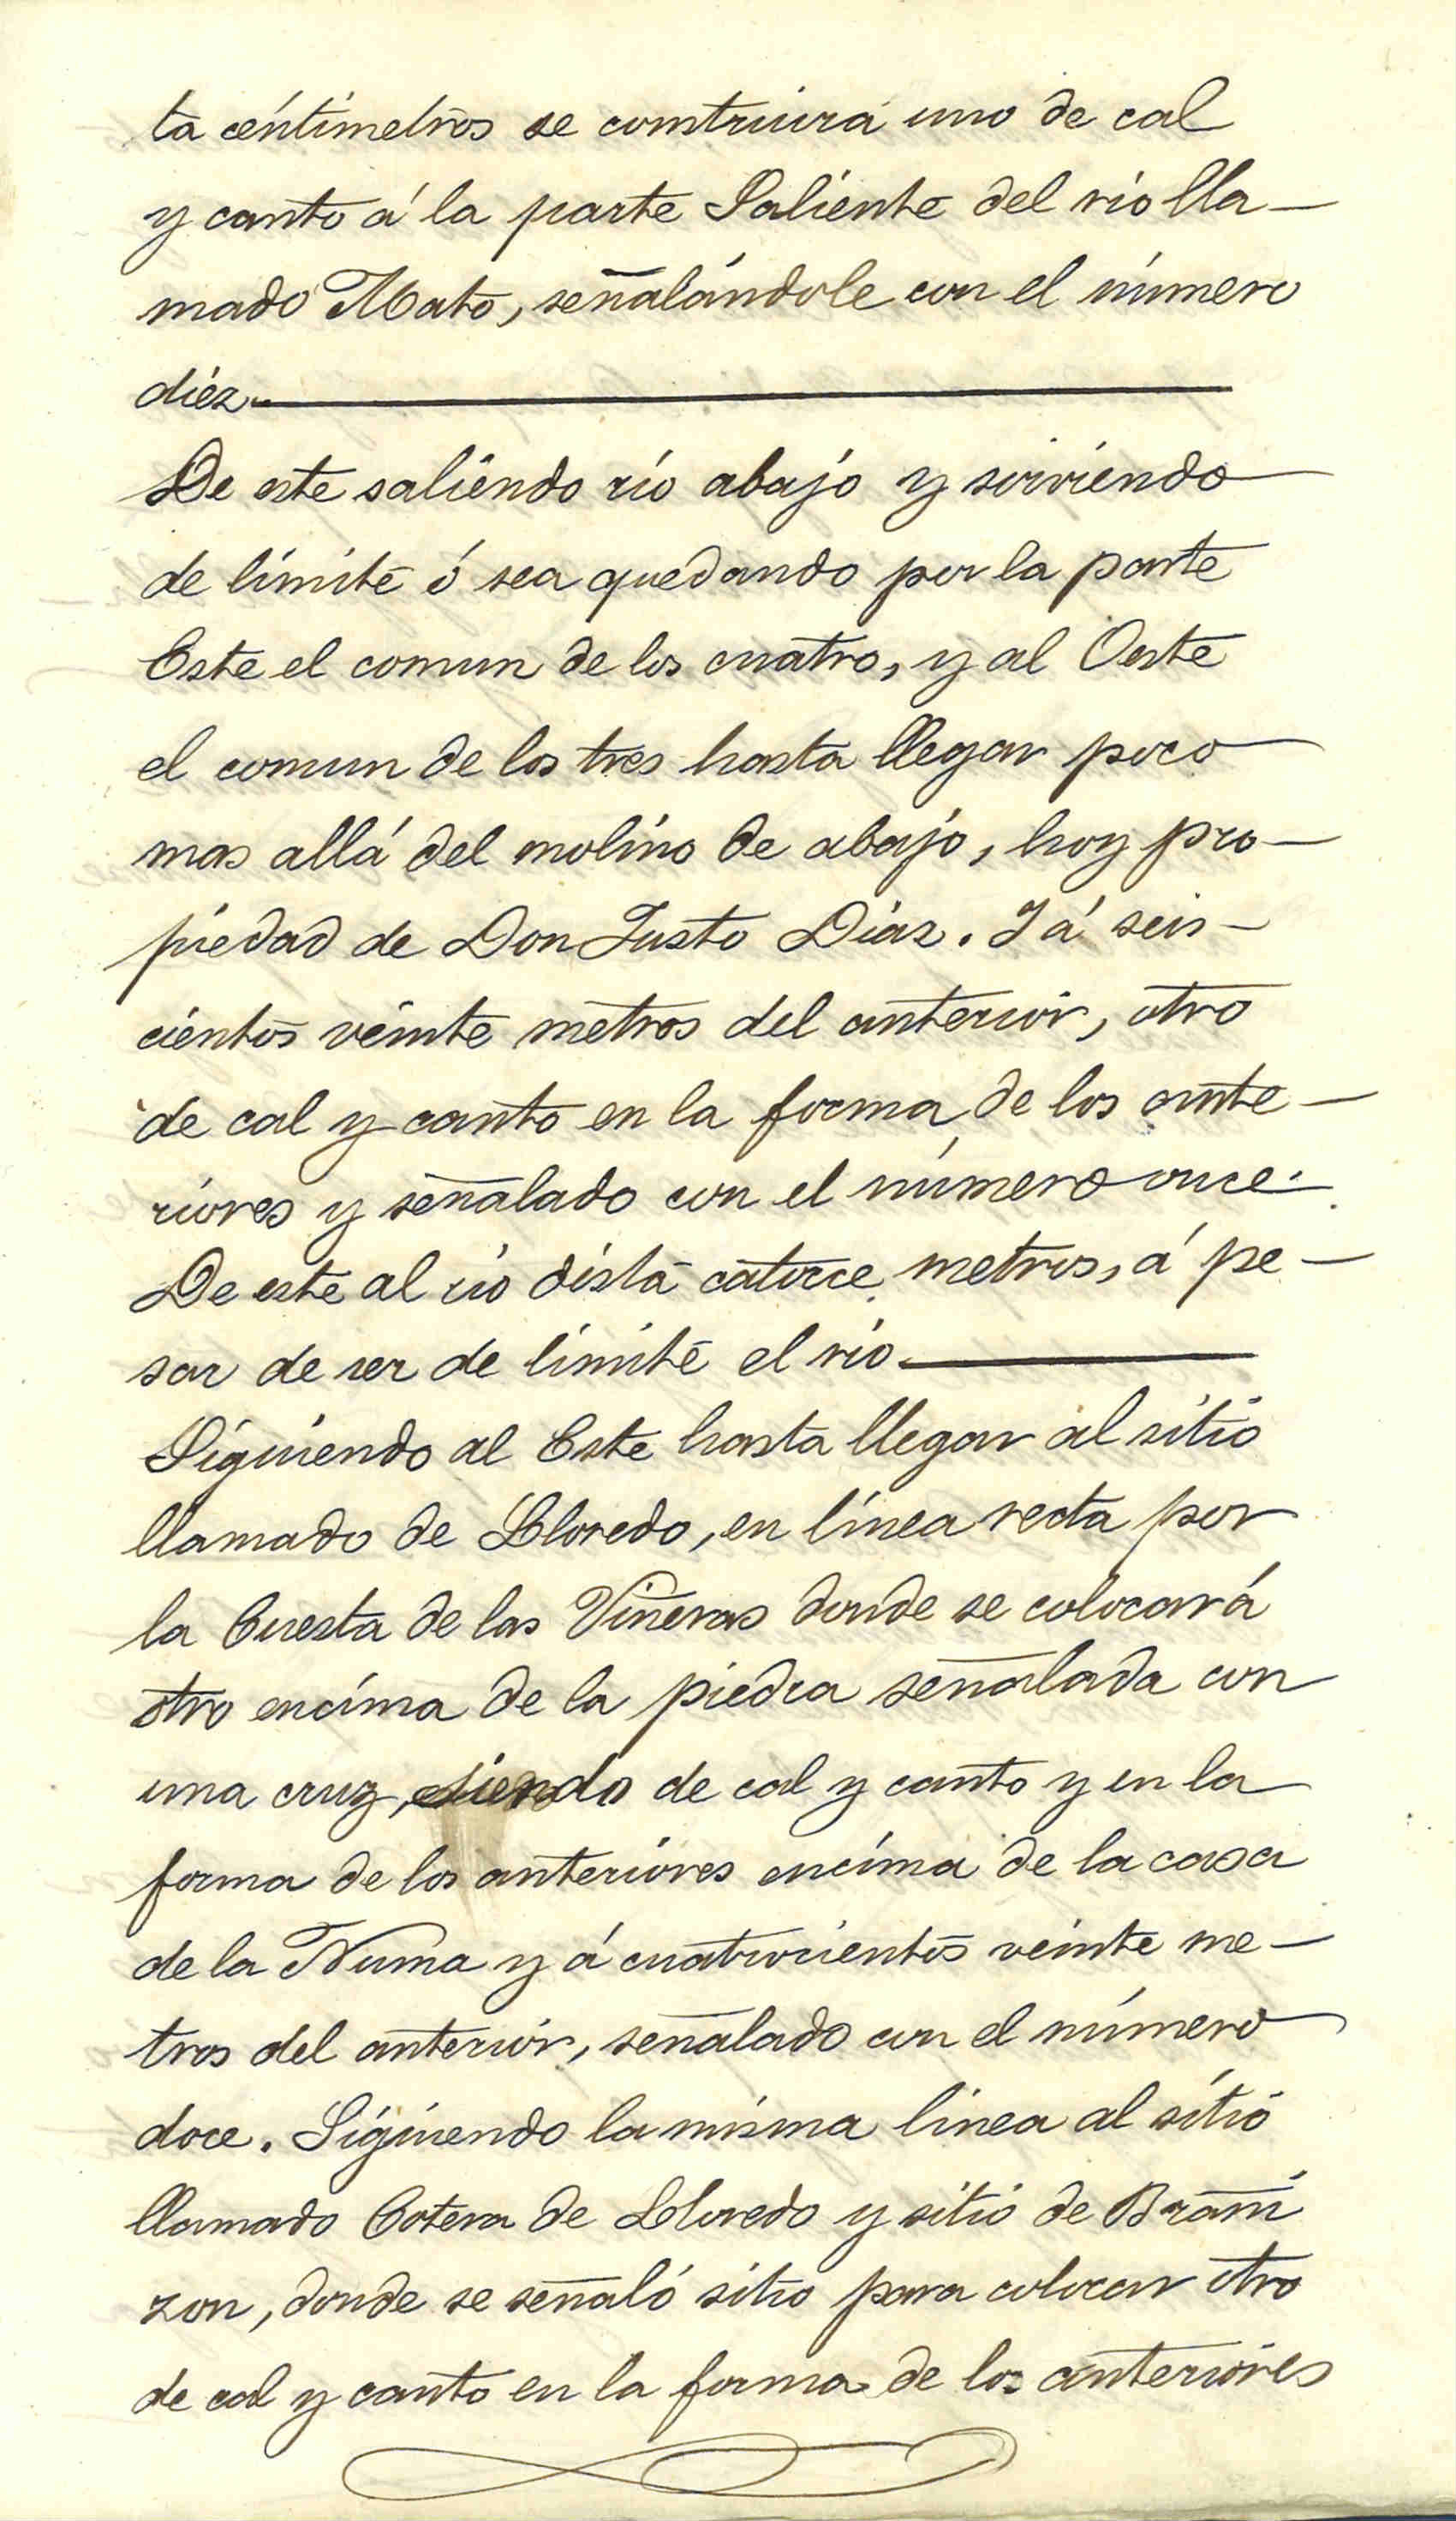 ta céntimetros se comtruira uno de cal
y canto á la parte Saliente del rio lla-
mado Mato, señalándole con el número
diez.
De este saliendo río abajo y sirviendo
de límite ó sea quedando por la parte
Este el comun de los cuatro, y al Oeste
el comun de los tres hasta llegar poco
mas allá del molino de abajo, hoy pro-
piedad de Don Justo Diaz. Y á seis-
cientos veinte metros del anterior, otro
de cal y canto en la forma de los ante-
riores y señalado con el número once.
De este al rio dista catorce metros, á pe-
sar de ser de límite el rio.
Siguiendo al Este hasta llegar al sitio
llamado de Lloredo, en línea recta por
la Cuesta de las Viñeras donde se colocará
otro encima de la piedra señalada con
una cruz, siendo de cal y canto y en la
forma de los anteriores encima de la casa
de la Numa y á cuatrocientos veinte me-
tros del anterior, señalado con el número
doce. Siguiendo la misma linea al sitio
llamado Cotera de Lloredo y sitio de Brañi
zon, donde se señaló sitio para colocar otro
de cal y canto en la forma de los anteriores